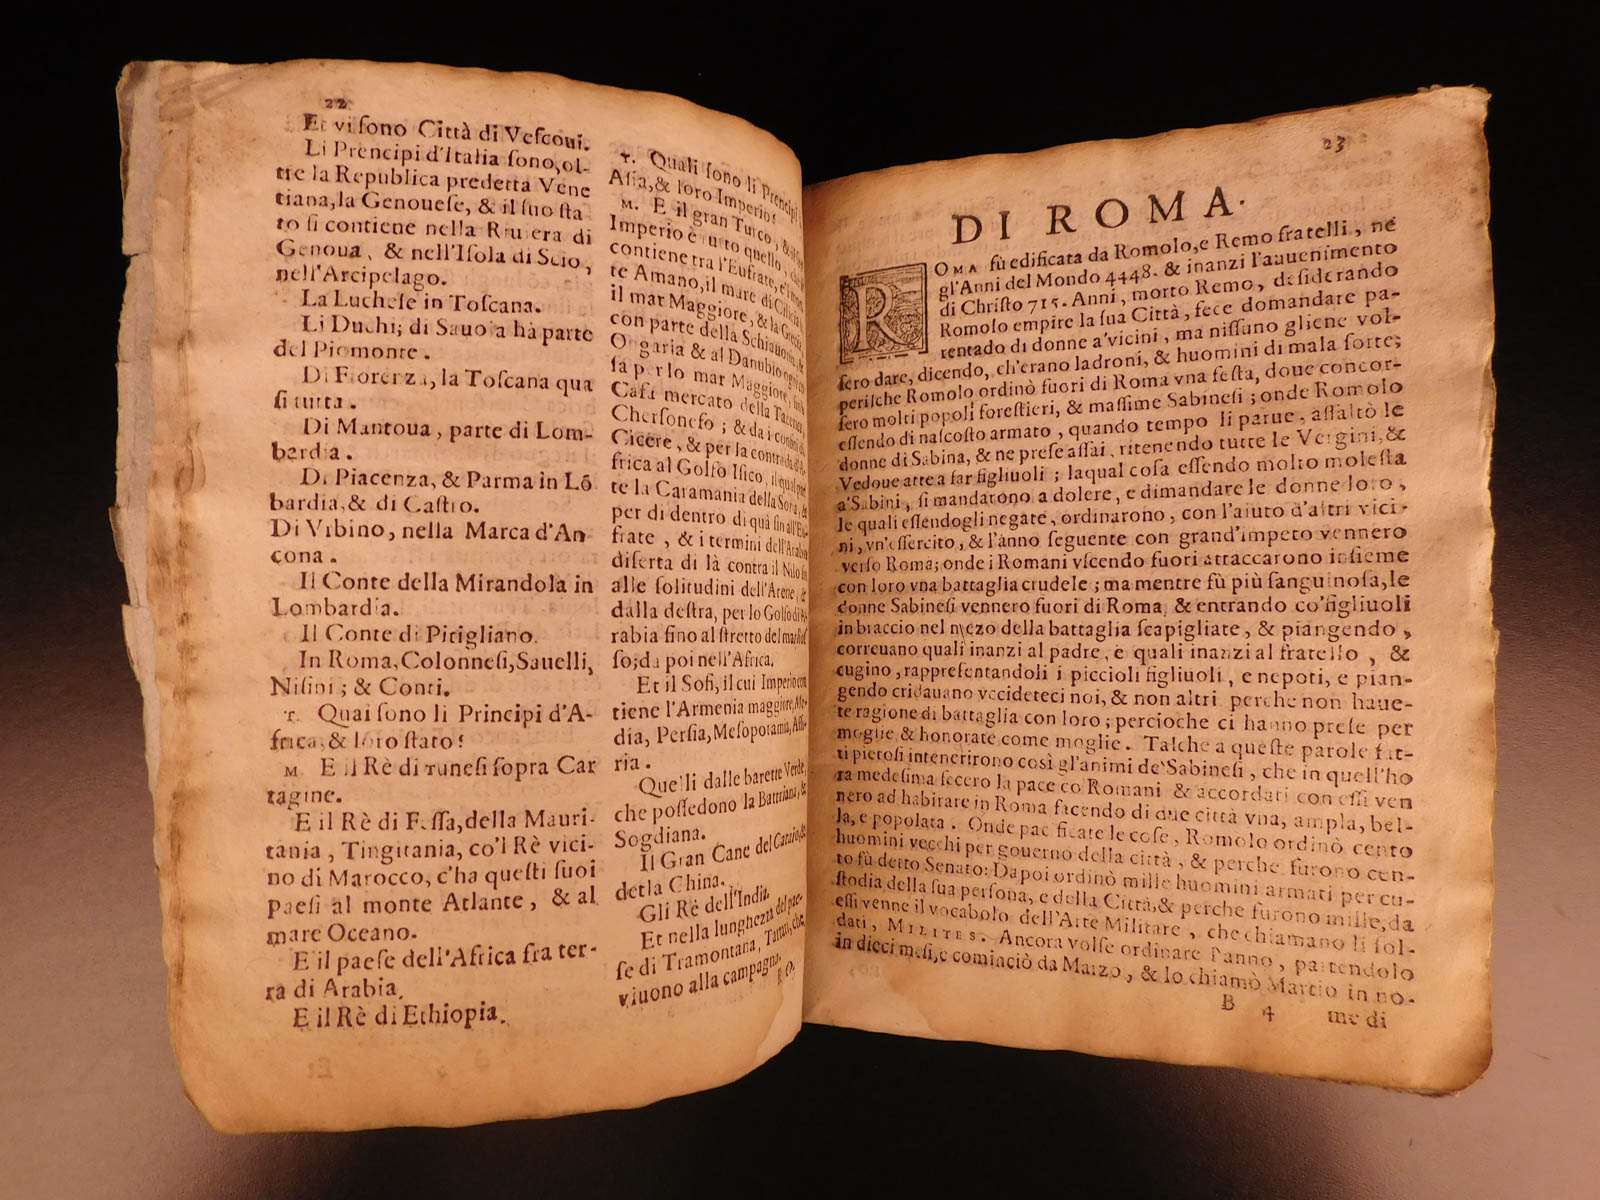 22
Et vi sono Città di Vescoui.
Li Prencipi d'Italia sono, ol-
tre la Republica predetta Vene
tiana, la Genouese, & il suo sta
to si contiene nella Riuiera di
Genoua, & nell'Isola di Scio,
nell'Arcipelago.
La Luchese in Toscana.
Li Duchi; di Sauoia hà parte
del Piemonte.
Di Fiorenza, la Toscana qua
si tutta.
Di Mantoua, parte di Lom-
bardia.
Di Piacenza, & Parma in Lõ
bardia, & di Castro.
Di Vrbino, nella Marca d'An
cona.
Il Conte della Mirandola in
Lombardia.
Il Conte di Pitigliano.
In Roma, Colonnesi, Sauelli,
Nisini; & Conti.
T. Quai sono li Principi d'A-
frica, & loro stato?
M. E il Rè di Tunesi sopra Car
tagine.
E il Rè di Fessa, della Mauri-
tània, Tingitania, co'l Rè vici-
no di Marocco, c'ha questi suoi
paesi al monte Atlante, & al
mare Oceano.
E il paese dell'Africa fra ter-
ra di Arabia.
E il Rè di Ethiopia.
T. Quali sono li Principi
Asia, & loro Imperio?
M. E il gran Turco, & il
Imperio è tutto quello, che
contiene tra l'Eufrate, e'l mon
te Amano, il mare di Cilicia
il mar Maggiore, & la Grecia
con parte della Schiauonia, &
Ongaria & al Danubio ogni co
sa per lo mar Maggiore,
Cafa mercato della
Chersoneso; & da i confini di
Cicere, & per la contrada d'A
frica al Golfo Isico, il qual par
te la Caramania della Soria, &
per di dentro di quà sin all'Eu
frate, & i termini dell'Arabia
diserta di là contra il Nilo sin
alle solitudini dell'Arene, &
dalla destra, per lo Golfo di A-
rabia fino al stretto del mar Ros
so; da poi nell'Africa.
Et il Sofi, il cui Imperio con
tiene l'Armenia maggiore, Me-
dia, Persia, Mesopotamia, Assi-
ria.
Quelli dalle barette Verde,
che possedono la Battriana, &
Sogdiana.
Il Gran Cane del Cataio, &
detla China.
Gli Rè dell'India.
Et nella lunghezza del pae-
se di Tramontana, Tartari, che
viuono alla campagna.
RO,
23
DI ROMA.
ROMA fù edificata da Romolo, e Remo fratelli, ne
gl'Anni del Mondo 4448. & inanzi l'auuenimento
di Christo 715. Anni, morto Remo, desiderando
Romolo empire la sua Città, fece domandare pa-
rentado di donne a'vicini, ma nissuno gliene vol-
sero dare, dicendo, ch'erano ladroni, & huomini di mala sorte;
perische Romolo ordinò fuori di Roma vna festa, doue concor-
sero molti popoli forestieri, & massime Sabinesi; onde Romolo
essendo di nascosto armato, quando tempo li parue, assaltò le
donne di Sabina, & ne prese assai, ritenendo tutte le Vergini, &
Vedoue atte a far figliuoli; laqual cosa essendo molto molesta
a'Sabini, si mandarono a dolere, e dimandare le donne loro,
le quali essendogli negate, ordinarono, con l'aiuto d'altri vici-
ni, vn'essercito, & l'anno seguente con grand'impeto vennero
verso Roma; onde i Romani vscendo fuori attaccarono insieme
con loro vna battaglia crudele; ma mentre fù più sanguinosa, le
donne Sabinesi vennero fuori di Roma, & entrando co'figliuoli
in braccio nel mezo della battaglia scapigliate, & piangendo,
correuano quali inanzi al padre, e quali inanzi al fratello, &
cugino, rappresentandoli i piccioli figliuoli, e nepoti, e pian-
gendo cridauano vccideteci noi, & non altri perche non haue-
te ragione di battaglia con loro; percioche ci hanno prese per
moglie & honorate come moglie. Talche a queste parole fat-
ti pietosi intenerirono così gl'animi de'Sabinesi, che in quell'ho
ra medesima fecero la pace co'Romani & accordati con essi ven
nero ad habitare in Roma facendo di due città vna, ampla, bel-
la, e popolata. Onde pacificate le cose, Romolo ordinò cento
huomini vecchi per gouerno della città, & perche furono cen-
to fù detto Senato: Dapoi ordinò mille huomini armati per cu-
stodia della sua persona, e della Città, & perche furono mille, da
essi venne il vocabolo dell'Arte Militare, che chiamano li sol-
dati, MILITES. Ancora volse ordinare l'anno, partendolo
in dieci mesi, e cominciò da Marzo, & lo chiamò Martio in no-
B 4 me di